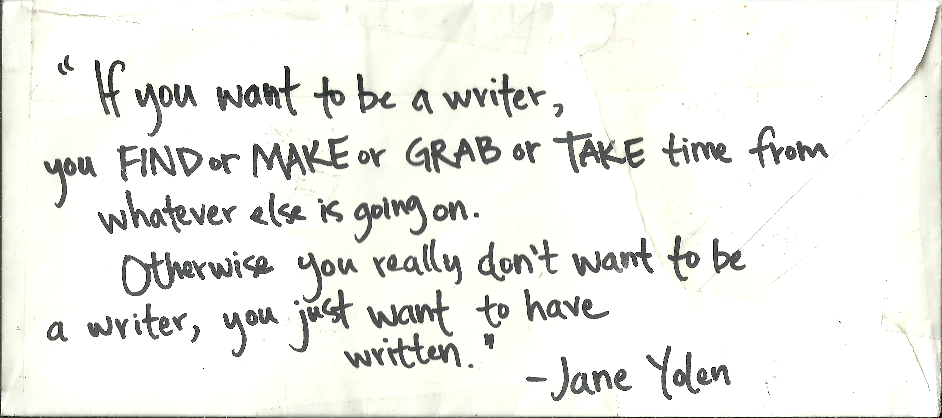 “ If you want to be a writer,
you FIND or MAKE or GRAB or TAKE time from
whatever else is going on.
Otherwise you really don't want to be
a writer, you just want to have
written."
-Jane Yolen